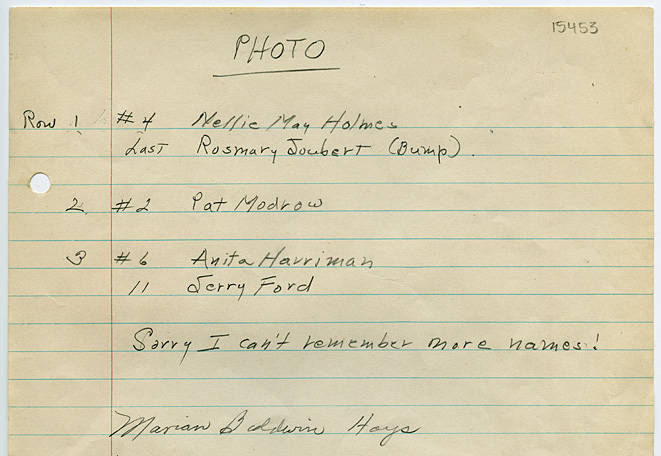 15453
PHOTO
Row 1 #4 Nellie May Holmes
Last Rosmary Joubert (Bump).
2 #2 Pat Modrow
3 #6 Anita Harriman
11 Jerry Ford
Sorry I can't remember more names!
Marian Baldwin Hays